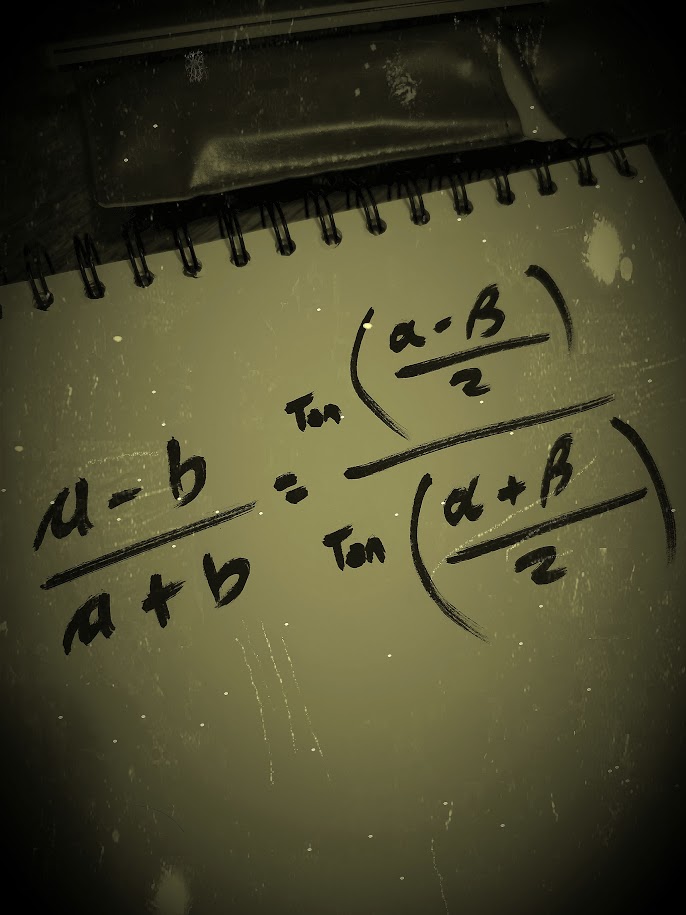 a - b / a + b = Tan ( α - β / 2 ) / Tan ( α + β / 2 )